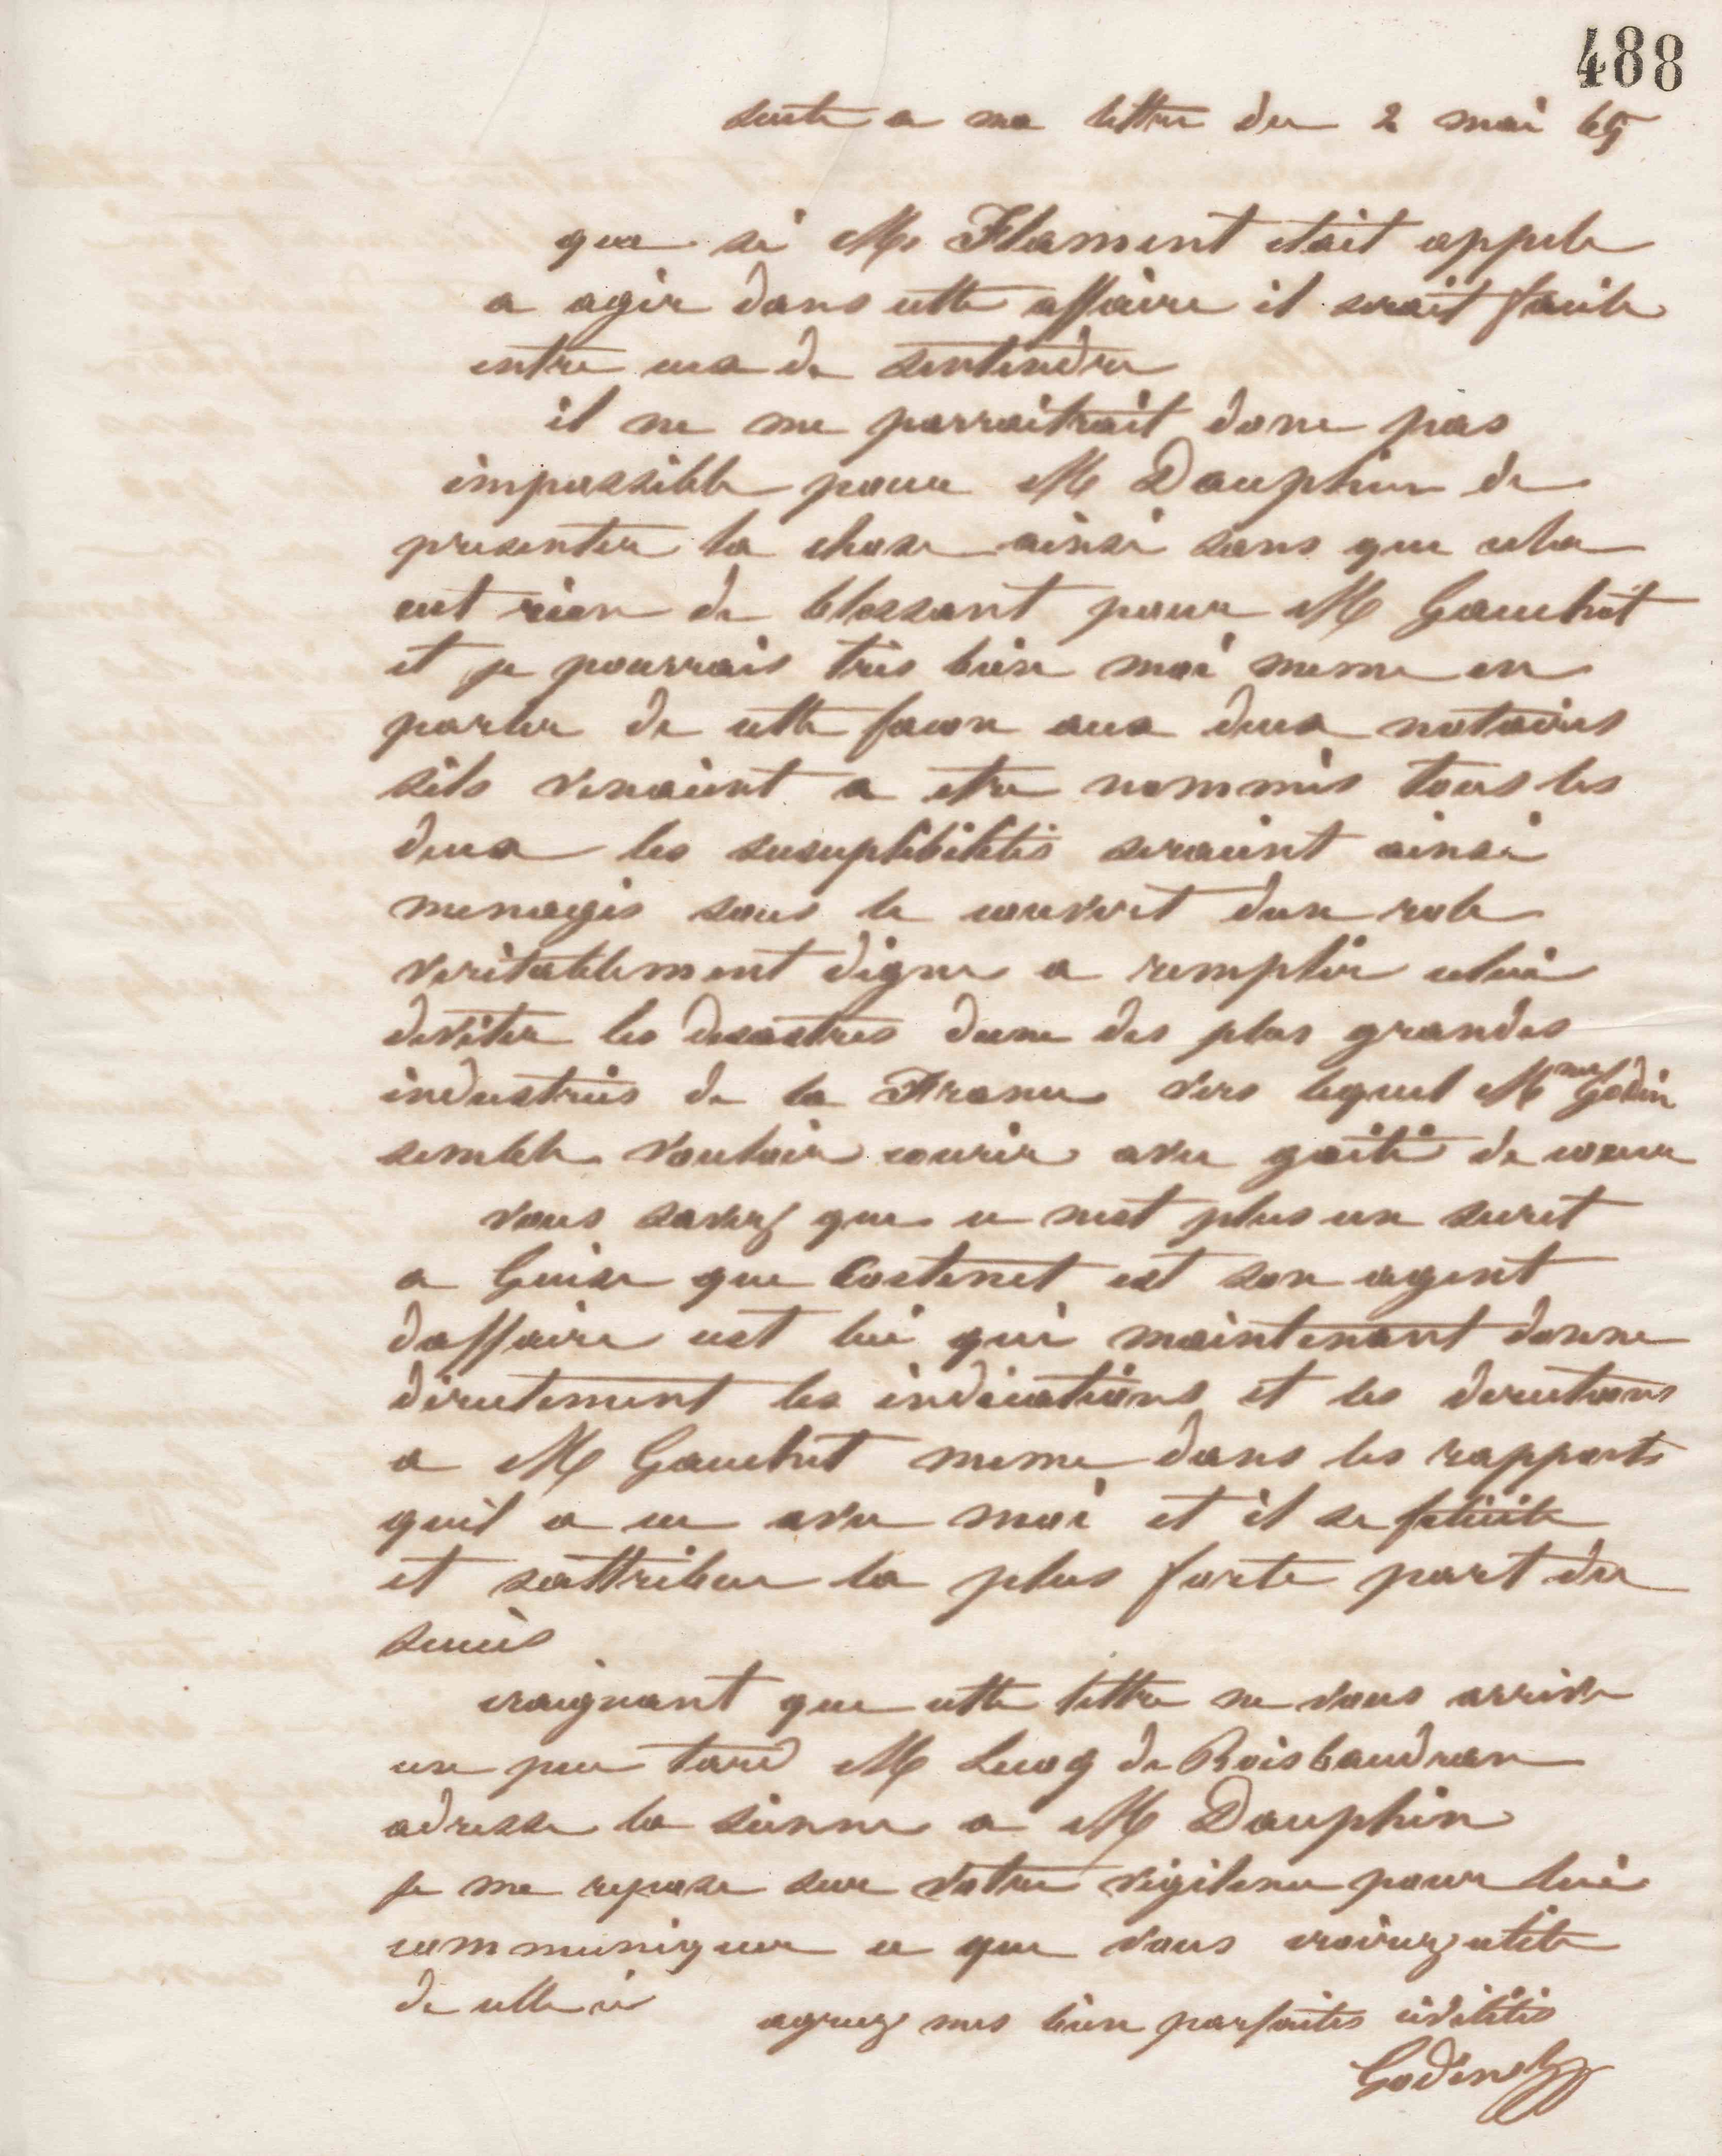 488
suite a ma lettre du 2 mai 65
que si Me Flament etait appele
a agir dans cette affaire il serait facile
entre eux de sentendre
il ne me parraitrait donc pas
impossible pour Me Dauphin de
presenter la chose ainsi sans que cela
eut rien de blessant pour Me Gauchet
et je pourrais tres bien moi meme en
parler de cette facon aux deux notaires
sils venaient a etre nommés tous les
deux les suceptibilités seraient ainsi
menagés sous le couvert dun role
veritablement digne a remplir celui
deviter les desastres dune des plus grandes
industries de la France vers lequel Mme Godin
semble vouloir courir avec gaité de coeur
vous savez que ce nest plus un secret
a Guise que Costenet est son agent
daffaire cest lui qui maintenant donne
directement les indications et les directions
a Me Gauchet meme dans les rapports
quil a eu avec moi et il se felicite
et sattribue la plus forte part du
succès
craignant que cette lettre ne vous arrive
un peu tard Me Lecoq de Boisbaudran
adresse la sienne a Me Dauphin
je me repose sur votre vigilence pour lui
communiquer ce que vous croirez utile
de celle ci
agreez mes bien parfaites civilités
Godin